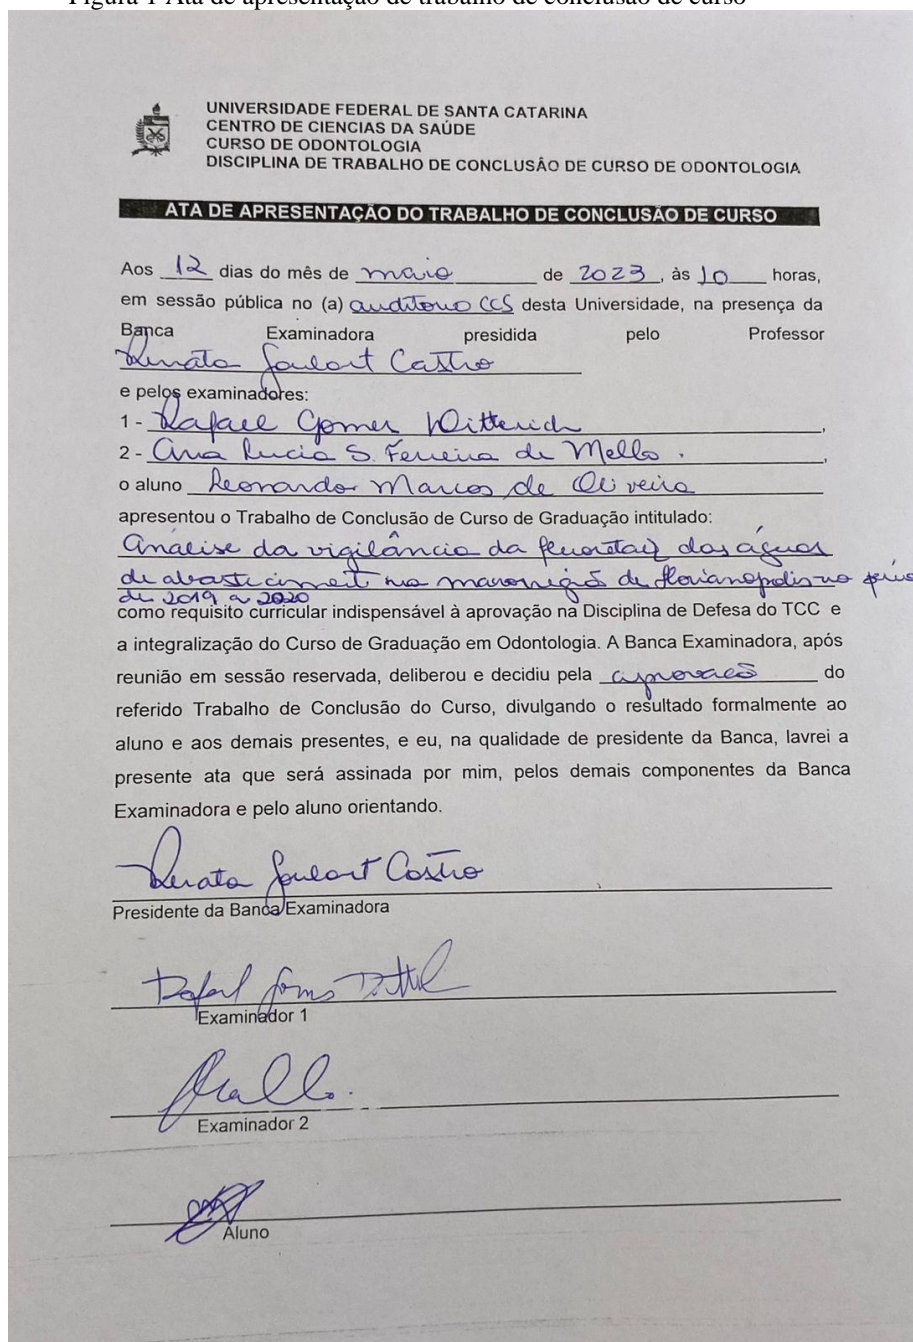 Figura 1 Ata de apresentação de trabalho de conclusão de curso
UNIVERSIDADE FEDERAL DE SANTA CATARINA
CENTRO DE CIENCIAS DA SAÚDE
CURSO DE ODONTOLOGIA
DISCIPLINA DE TRABALHO DE CONCLUSÃO DE CURSO DE ODONTOLOGIA
ATA DE APRESENTAÇÃO DO TRABALHO DE CONCLUSÃO DE CURSO
Aos 12 dias do mês de maio de 2023, às 10 horas,
em sessão pública no (a) auditorio CCS desta Universidade, na presença da
Banca Examinadora presidida pelo Professor
Renata Goulart Castro
e pelos examinadores:
1 - Rafael Gomes Ditterich,
2 - Ana Lucia S. Ferreira de Mello.,
o aluno Leonardo Marcos de Oliveira
apresentou o Trabalho de Conclusão de Curso de Graduação intitulado:
Análise da vigilância da das águas
de na de Florianopolis no
de 2019 a 2020
como requisito curricular indispensável à aprovação na Disciplina de Defesa do TCC e
a integralização do Curso de Graduação em Odontologia. A Banca Examinadora, após
reunião em sessão reservada, deliberou e decidiu pela aprovação do
referido Trabalho de Conclusão do Curso, divulgando o resultado formalmente ao
aluno e aos demais presentes, e eu, na qualidade de presidente da Banca, lavrei a
presente ata que será assinada por mim, pelos demais componentes da Banca
Examinadora e pelo aluno orientando.
Renata Goulart Castro
Presidente da Banca Examinadora
Examinador 1
Examinador 2
Aluno